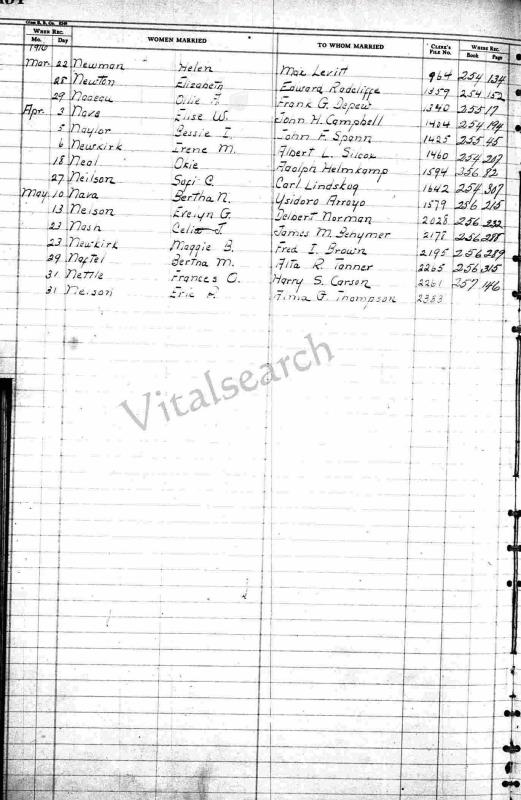 WHEN REC. WOMEN MARRIED TO WHOM MARRIED CLERK'S FILE NO. WHERE REC.
Mo. Day Book Page
1910
Mar. 22 Newman Helen Max Levitt 964 254 134
28 Newton Elizabeth Edward Radcliffe 1359 254 152
29 Ollie Frank G. Depew 1340 255 17
Apr. 3 Nava Elise W. John H. Campbell 1404 254 194
5 Naylor Bessie I. John F. Spann 1425 255 45
6 Newkirk Irene M. Albert L. Silcox 1460 254 207
18 Neal Okie Adolph Helmkamp 1594 256 82
27 Neilson C. Carl Lindskog 1642 254 307
May. 10 Nava Bertha N. Ysidoro Arroyo 1579 256 215
13 Nelson Evelyn G. Delbert Norman 2028 256 232
23 Nash Celia J. James M. Benymer 2178 256 288
23 Newkirk Maggie B. Fred I. Brown 2195 256 289
29 Bertha M. R. Tanner 2265 256 315
31 Nettle Frances O. Harry S. Carson 2261 257 146
31 Nelson G. Thompson 2383
Vitalsearch